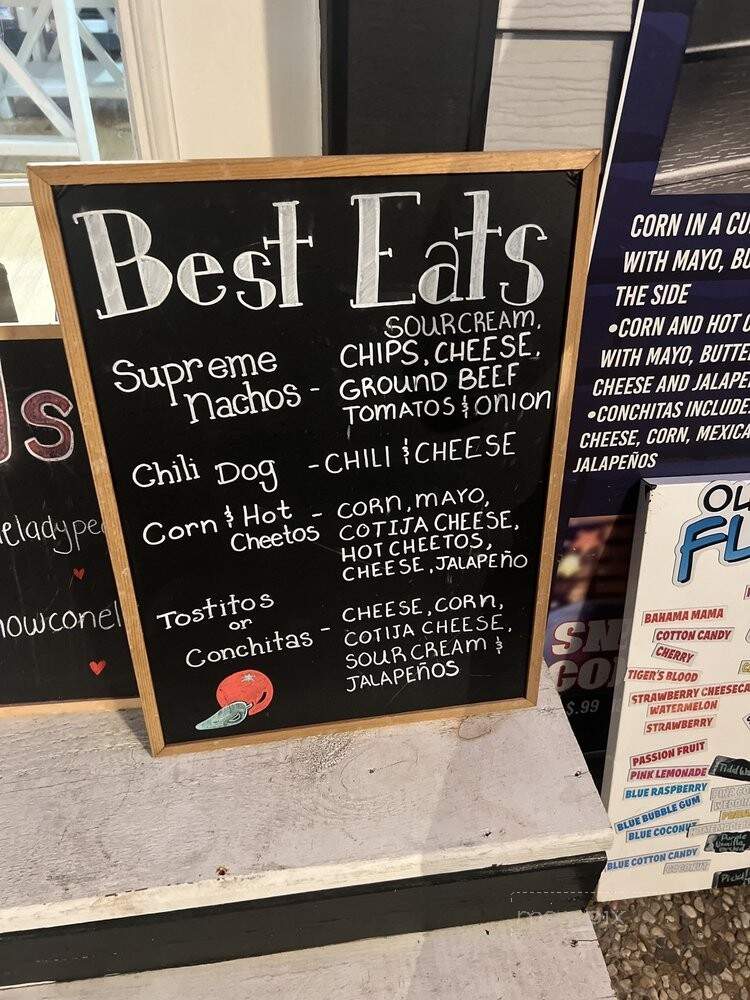 Best Eats
Supreme
Nachos -
SOURCREAM,
CHIPS, CHEESE,
GROUND BEEF
TOMATOS & ONION
Chili Dog - CHILI & CHEESE
Corn & Hot
Cheetos -
CORN, MAYO,
COTIJA CHEESE,
HOT CHEETOS,
CHEESE, JALAPEÑO
Tostitos
or
Conchitas -
CHEESE, CORN,
COTIJA CHEESE,
SOUR CREAM &
JALAPEÑOS
CORN IN A
WITH MAYO,
THE SIDE
•CORN AND HOT
WITH MAYO,
CHEESE AND
•CONCHITAS
CHEESE, CORN,
JALAPEÑOS
$.99
BAHAMA MAMA
COTTON CANDY
CHERRY
TIGER'S BLOOD
WATERMELON
STRAWBERRY
PASSION FRUIT
PINK LEMONADE
BLUE RASPBERRY
BLUE BUBBLE GUM
BLUE COCONUT
BLUE COTTON CANDY
COCONUT